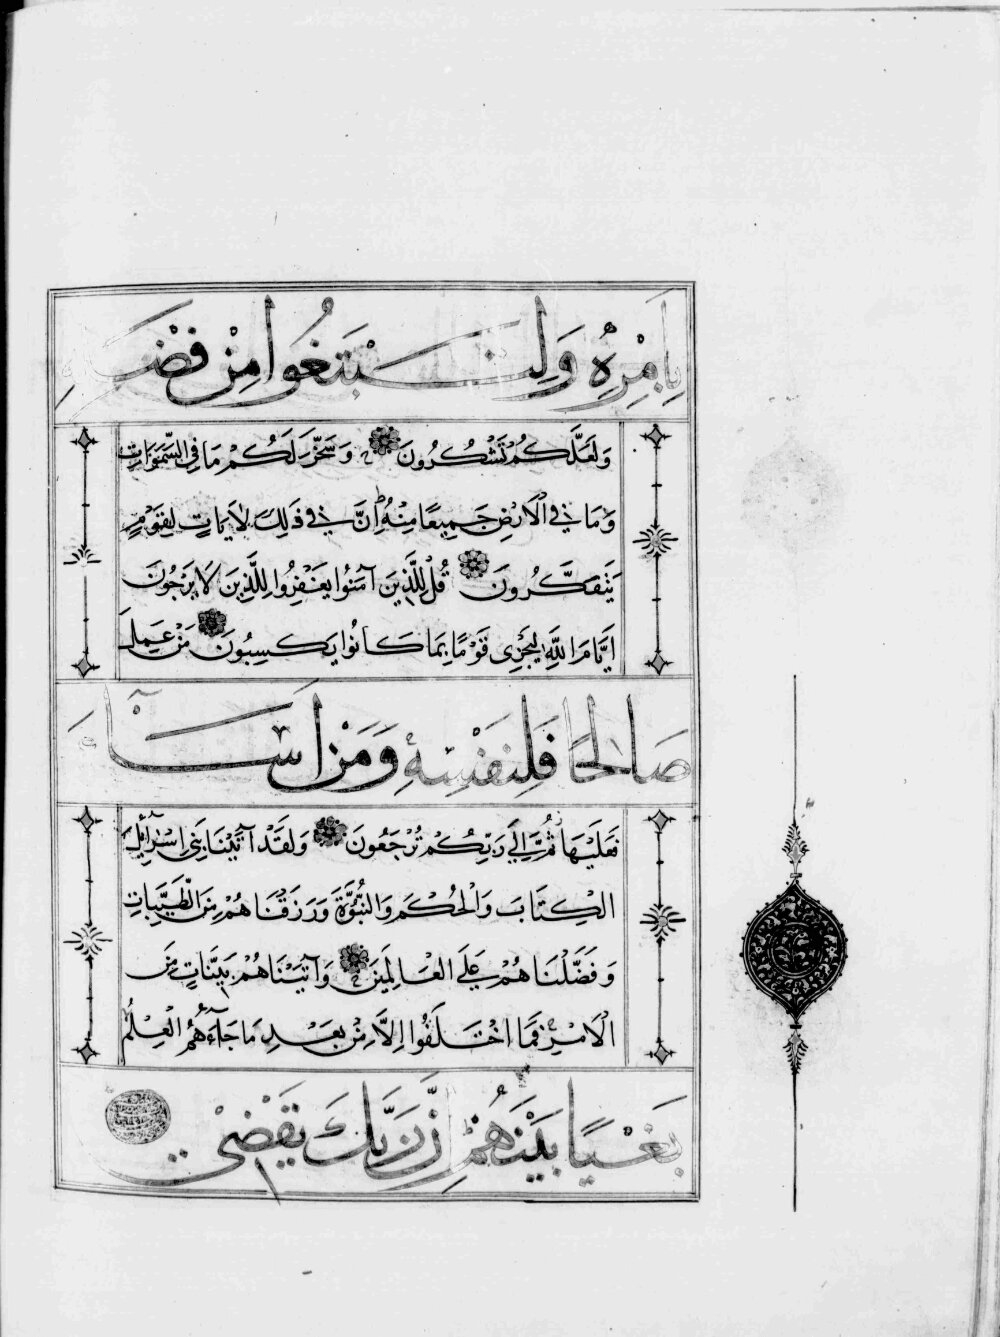 بِأَمْرِهِ وَلِتَبْتَغُوا مِنْ فَضْلِهِ
وَلَعَلَّكُمْ تَشْكُرُونَ وَسَخَّرَ لَكُمْ مَا فِي السَّمَوَاتِ
وَمَا فِي الْأَرْضِ جَمِيعًا مِنْهُ إِنَّ فِي ذَلِكَ لَآيَاتٍ لِقَوْمٍ
يَتَفَكَّرُونَ قُلْ لِلَّذِينَ آمَنُوا يَغْفِرُوا لِلَّذِينَ لَا يَرْجُونَ
أَيَّامَ اللَّهِ لِيَجْزِيَ قَوْمًا بِمَا كَانُوا يَكْسِبُونَ مَنْ عَمِلَ
صَالِحًا فَلِنَفْسِهِ وَمَنْ أَسَاءَ
فَعَلَيْهَا ثُمَّ إِلَى رَبِّكُمْ تُرْجَعُونَ وَلَقَدْ آتَيْنَا بَنِي إِسْرَائِيلَ
الْكِتَابَ وَالْحُكْمَ وَالنُّبُوَّةَ وَرَزَقْنَاهُمْ مِنَ الطَّيِّبَاتِ
وَفَضَّلْنَاهُمْ عَلَى الْعَالَمِينَ وَآتَيْنَاهُمْ بَيِّنَاتٍ مِنَ
الْأَمْرِ فَمَا اخْتَلَفُوا إِلَّا مِنْ بَعْدِ مَا جَاءَهُمُ الْعِلْمُ
بَغْيًا بَيْنَهُمْ إِنَّ رَبَّكَ يَقْضِي